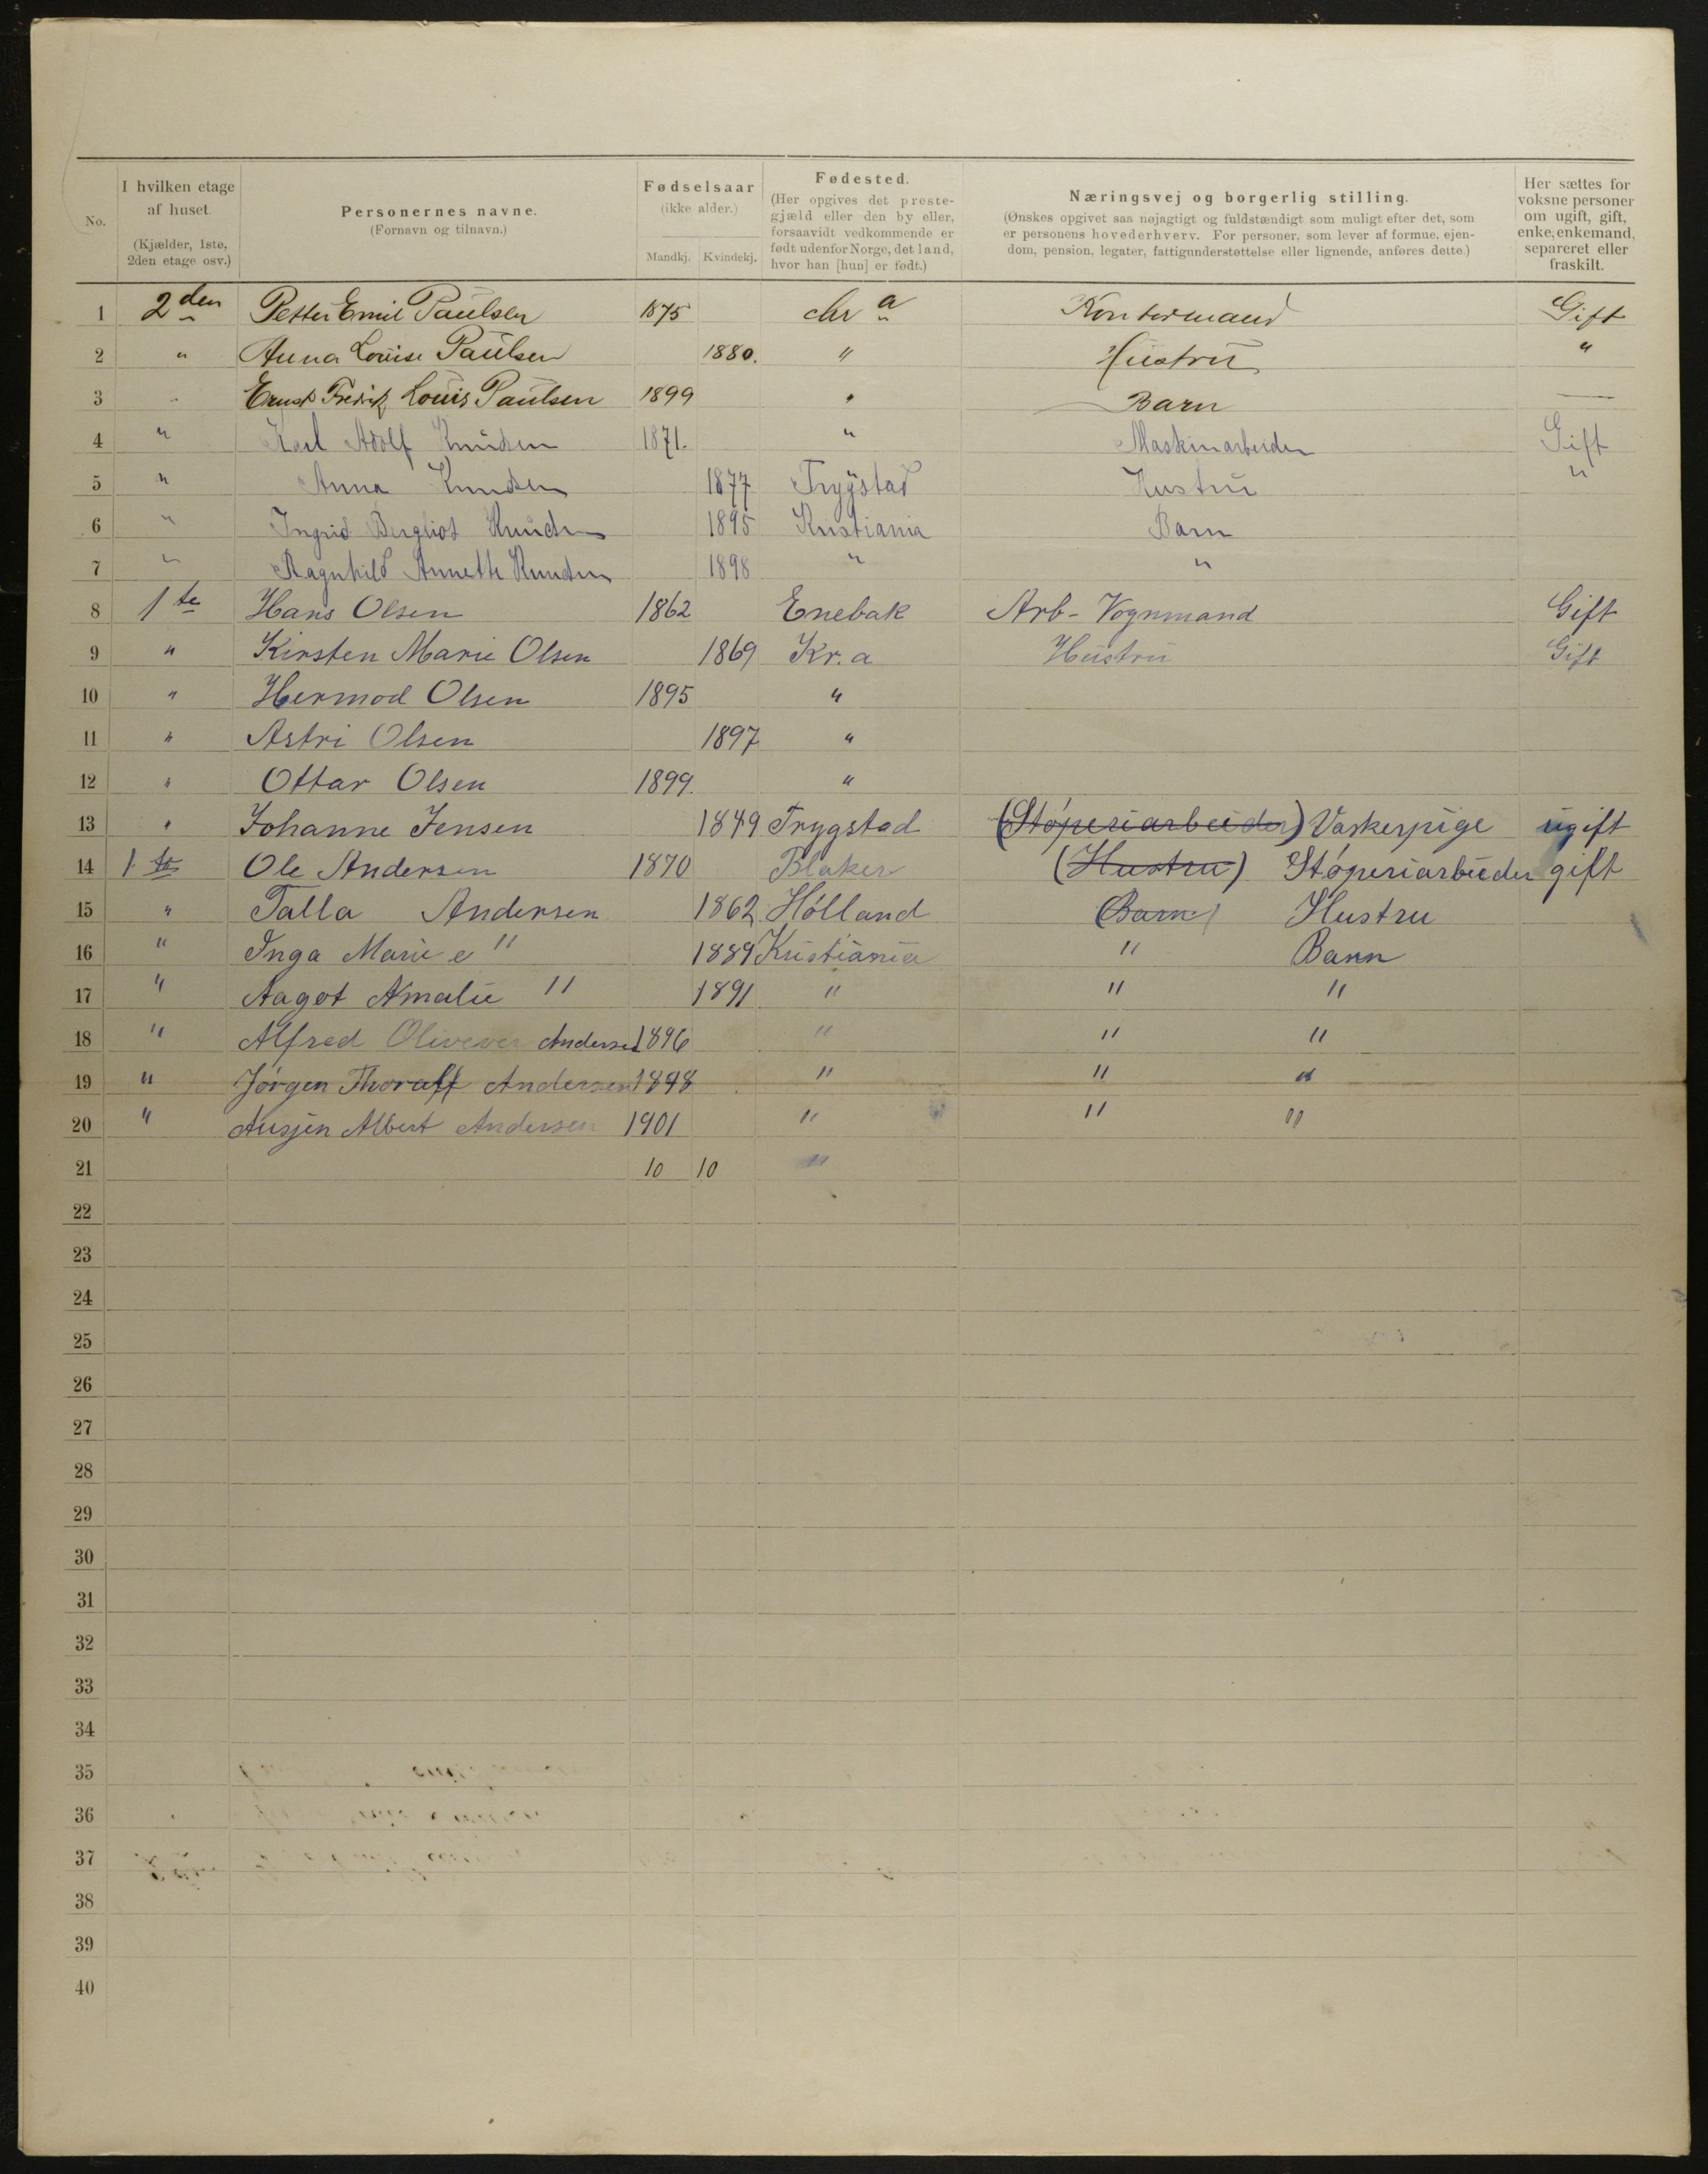 No.
I hvilken etage af huset. (Kjælder, 1ste, 2den etage osv.)
Personernes navne. (Fornavn og tilnavn.)
Fødselsaar (ikke alder.) Mandkj. Kvindekj.
Fødested. (Her opgives det prestegjæld eller den by eller, forsaavidt vedkommende er født udenfor Norge, det land, hvor han [hun] er født.)
Næringsvej og borgerlig stilling. (Ønskes opgivet saa nøjagtigt og fuldstændigt som muligt efter det, som er personens hovederhverv. For personer, som lever af formue, ejendom, pension, legater, fattigunderstøttelse eller lignende, anføres dette.)
Her sættes for voksne personer om ugift, gift, enke, enkemand, separeret eller fraskilt.
1 2den Petter Emil Paulsen 1875 Chra Kontormand Gift
2 " Anna Louise Paulsen 1880. " Hustru "
3 " Ernst Fredrik Louis Paulsen 1899 " Barn —
4 " Karl Adolf Knudsen 1871. " Maskinarbeider Gift
5 " Anna Knudsen 1877 Trygstad Hustru "
6 " Ingrid Bergliot Knudsen 1895 Kristiania Barn
7 " Ragnhild Annette Knudsen 1898 " "
8 1te Hans Olsen 1862 Enebak Arb-Vognmand Gift
9 " Kirsten Marie Olsen 1869 Kr.a Hustru Gift
10 " Hermod Olsen 1895 "
11 " Astri Olsen 1897 "
12 " Ottar Olsen 1899. "
13 " Johanne Jensen 1849 Trygstad (Støperiarbeider) Vaskerpige ugift
14 1te Ole Andersen 1870 Blaker (Hustru) Støperiarbeider gift
15 " Talla Andersen 1862 Hølland (Barn) Hustru
16 " Inga Marie " 1889 Kristiania " Barn
17 " Aagot Amalie " 1891 " " "
18 " Alfred Andersen 1896 " " "
19 " Jørgen Thoralf Andersen 1898 " " "
20 " Albert Andersen 1901 " " "
21 10 10 "
22
23
24
25
26
27
28
29
30
31
32
33
34
35
36
37
38
39
40